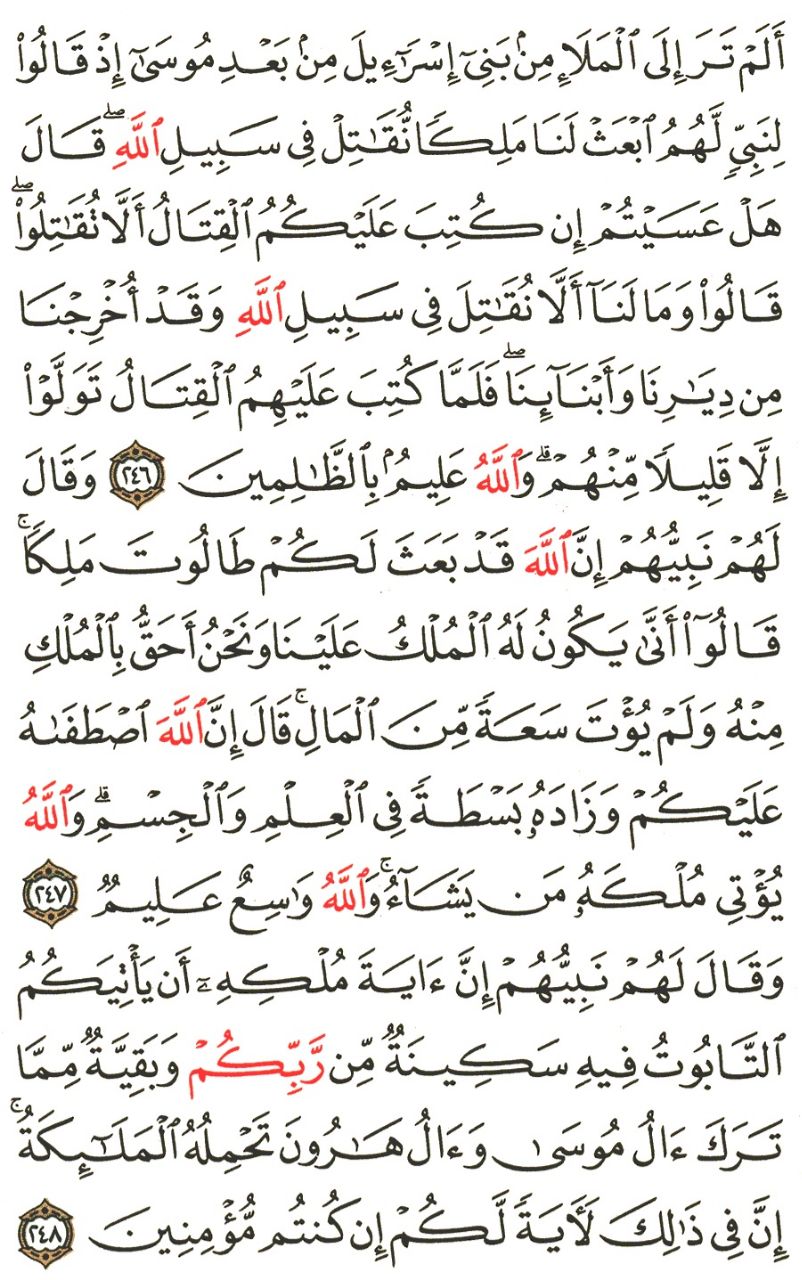 أَلَمْ تَرَ إِلَى ٱلْمَلَإِ مِنۢ بَنِىٓ إِسْرَٰٓءِيلَ مِنۢ بَعْدِ مُوسَىٰٓ إِذْ قَالُوا۟
لِنَبِىٍّ لَّهُمُ ٱبْعَثْ لَنَا مَلِكًا نُّقَٰتِلْ فِى سَبِيلِ ٱللَّهِ ۖ قَالَ
هَلْ عَسَيْتُمْ إِن كُتِبَ عَلَيْكُمُ ٱلْقِتَالُ أَلَّا تُقَٰتِلُوا۟ ۖ
قَالُوا۟ وَمَا لَنَآ أَلَّا نُقَٰتِلَ فِى سَبِيلِ ٱللَّهِ وَقَدْ أُخْرِجْنَا
مِن دِيَٰرِنَا وَأَبْنَآئِنَا ۖ فَلَمَّا كُتِبَ عَلَيْهِمُ ٱلْقِتَالُ تَوَلَّوْا۟
إِلَّا قَلِيلًا مِّنْهُمْ ۗ وَٱللَّهُ عَلِيمٌۢ بِٱلظَّٰلِمِينَ ٢٤٦ وَقَالَ
لَهُمْ نَبِيُّهُمْ إِنَّ ٱللَّهَ قَدْ بَعَثَ لَكُمْ طَالُوتَ مَلِكًا ۚ
قَالُوٓا۟ أَنَّىٰ يَكُونُ لَهُ ٱلْمُلْكُ عَلَيْنَا وَنَحْنُ أَحَقُّ بِٱلْمُلْكِ
مِنْهُ وَلَمْ يُؤْتَ سَعَةً مِّنَ ٱلْمَالِ ۚ قَالَ إِنَّ ٱللَّهَ ٱصْطَفَىٰهُ
عَلَيْكُمْ وَزَادَهُۥ بَسْطَةً فِى ٱلْعِلْمِ وَٱلْجِسْمِ ۗ وَٱللَّهُ
يُؤْتِى مُلْكَهُۥ مَن يَشَآءُ ۚ وَٱللَّهُ وَٰسِعٌ عَلِيمٌ ٢٤٧
وَقَالَ لَهُمْ نَبِيُّهُمْ إِنَّ ءَايَةَ مُلْكِهِۦٓ أَن يَأْتِيَكُمُ
ٱلتَّابُوتُ فِيهِ سَكِينَةٌ مِّن رَّبِّكُمْ وَبَقِيَّةٌ مِّمَّا
تَرَكَ ءَالُ مُوسَىٰ وَءَالُ هَٰرُونَ تَحْمِلُهُ ٱلْمَلَٰٓئِكَةُ ۚ
إِنَّ فِى ذَٰلِكَ لَءَايَةً لَّكُمْ إِن كُنتُم مُّؤْمِنِينَ ٢٤٨